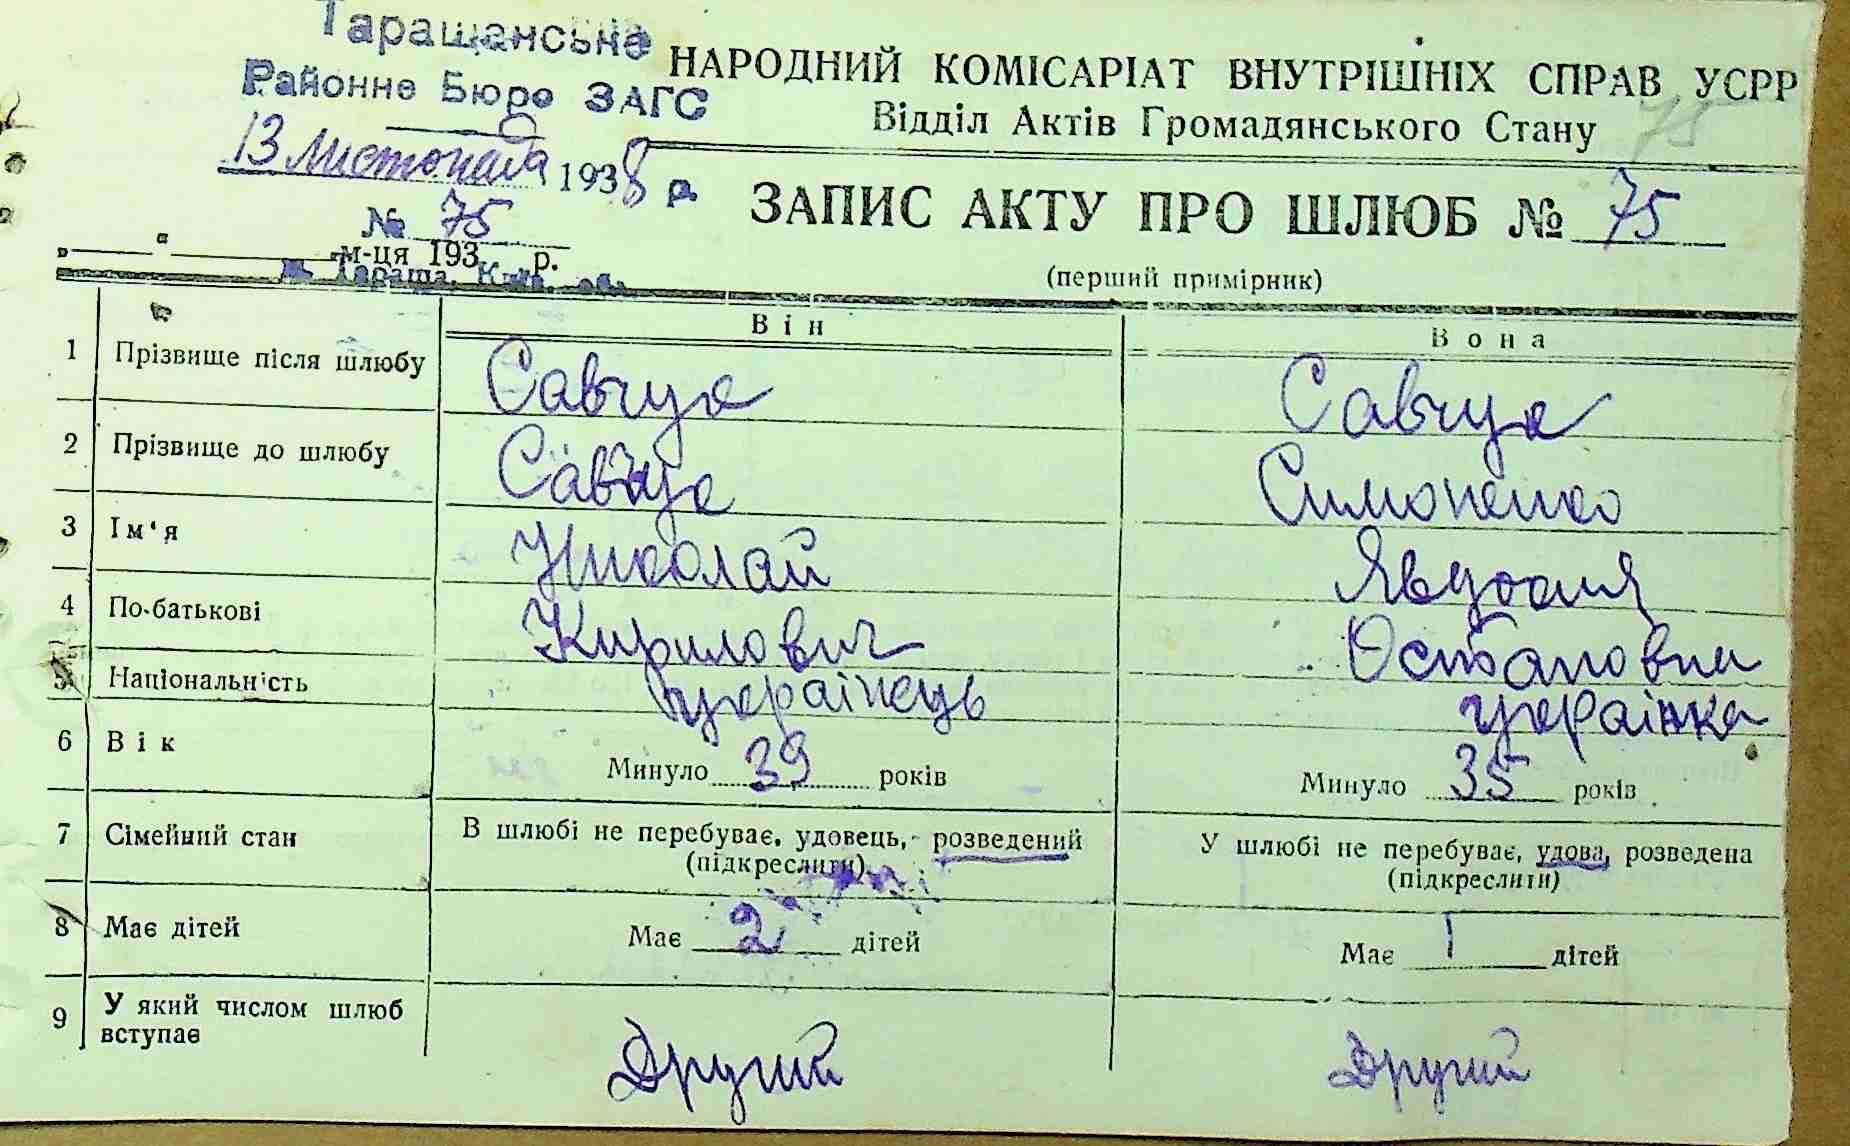 Таращанське
Районне Бюро ЗАГС
13 листопада 1938 р.
№ 75
„ “ м-ця 193 р.
м. Тараща, Київ. обл.
НАРОДНИЙ КОМІСАРІАТ ВНУТРІШНІХ СПРАВ УСРР
Відділ Актів Громадянського Стану
75
ЗАПИС АКТУ ПРО ШЛЮБ № 75
(перший примірник)
Він Вона
1 Прізвище після шлюбу Савчук Савчук
2 Прізвище до шлюбу Савчук Симоненко
3 Ім'я Николай Явдокия
4 По-батькові Кирилович Остаповна
5 Національність українець українка
6 Вік Минуло 39 років Минуло 35 років
7 Сімейний стан В шлюбі не перебуває, удовець, розведений У шлюбі не перебуває, удова, розведена
(підкреслити) (підкреслити)
8 Має дітей Має 2 дітей Має 1 дітей
9 У який числом шлюб
вступає Другий Другий